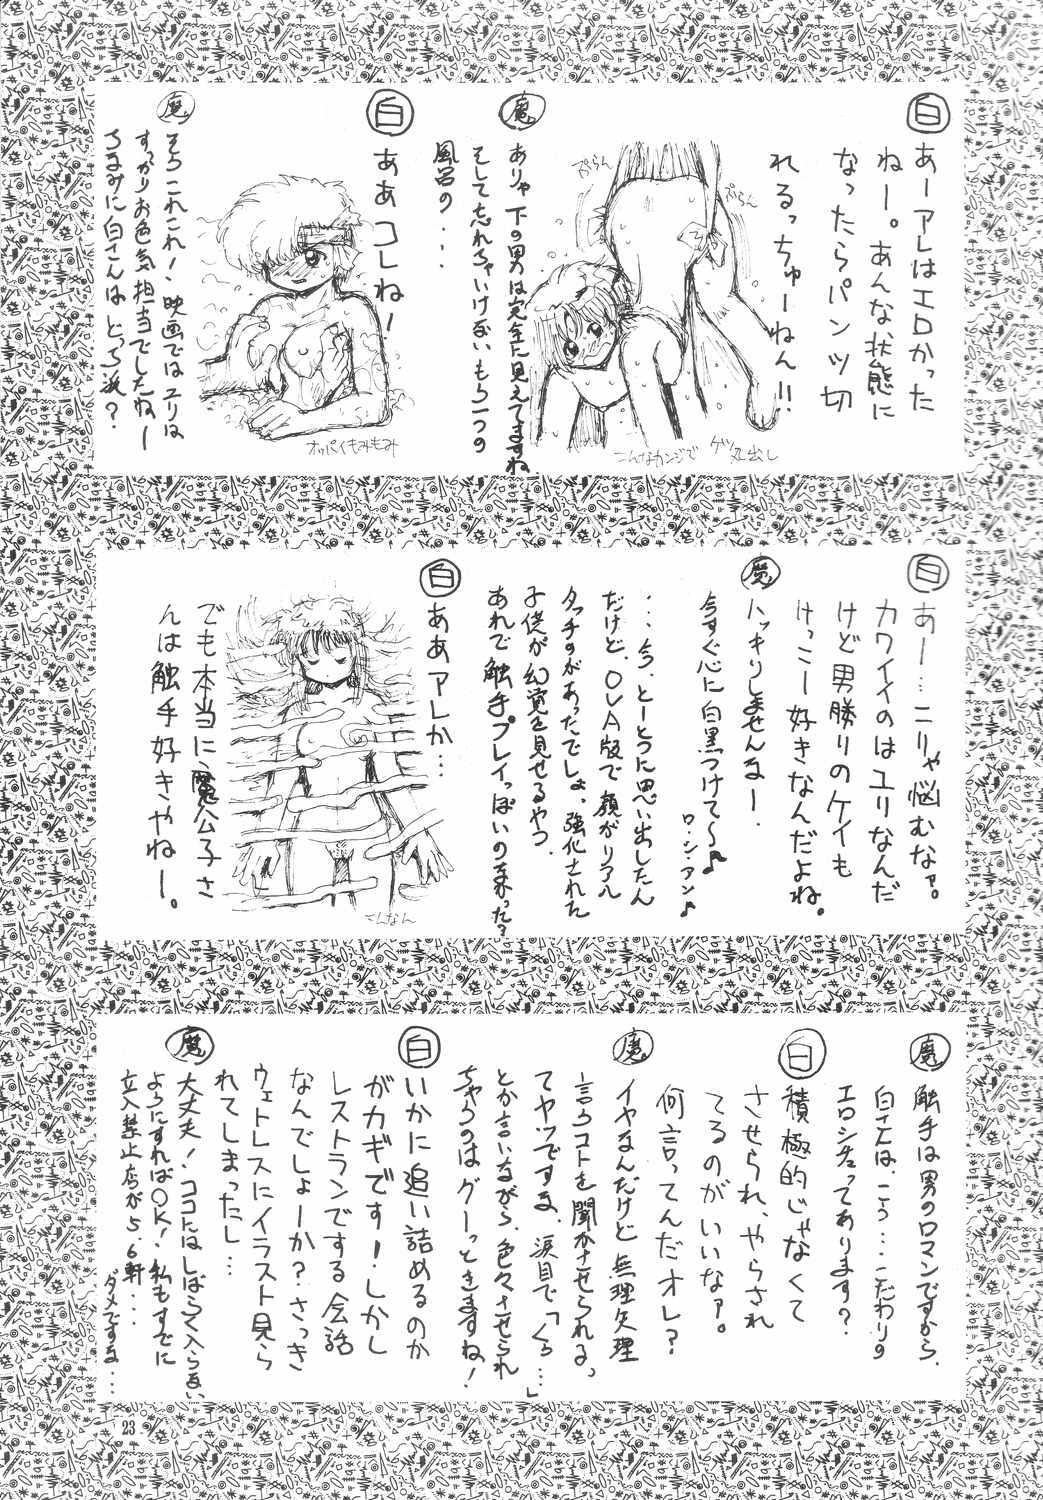 白
あーアレはエロかった
ねー。あんな状態に
なったらパンツ切
れるっちゅーねん!!
ぷらん
ぷらん
こんなカンジで
ケツ丸出し
魔
ありゃ下の男は完全に見えてますね。
そして忘れちゃいけないもう一つの
風呂の・・・・
白
ああコレねー
オッパイもみもみ
魔
そうこれこれ!映画ではユリは
すっかりお色気担当でしたねー
ちなみに白さんはどっち派?
白
あー…こりゃ悩むなァ。
カワイイのはユリなんだ
けど男勝りのケイも
けっこー好きなんだよね。
魔
ハッキリしませんなー.
今すぐ心に白黒つけて〜♪
ロ・シ・アン♪
・・・今、とーとつに思い出したん
だけど、OVA版で顔がリアル
タッチのがあったでしょ、強化された
子供が幻覚を見せるやつ.
あれで触手プレイっぽいの来かった?
白
ああアレか…
こんなん
でも本当に、魔公子さ
んは触手好きやねー。
魔
触手は男のロマンですから.
白さんは、こう…こだわりの
エロシチュってあります?
白
積極的じゃなくて
させられ、やらされ
てるのがいいなァ。
何言ってんだオレ?
魔
イヤなんだけど無理矢理
言うコトを聞かせられる、
てヤツですな.涙目で「くっ…」
とか言いながら色々させられ
ちゃうのはグーっときますね!
白
いかに追い詰めるのか
がカギですー しかし
レストランでする会話
なんでしょーか?さっき
ウェトレスにイラスト見ら
れてしまったし…
魔
大丈夫!ココにはしばらく入らない
ようにすればOK!私もすでに
立入禁止店が5.6軒・・・
ダメですな…
23